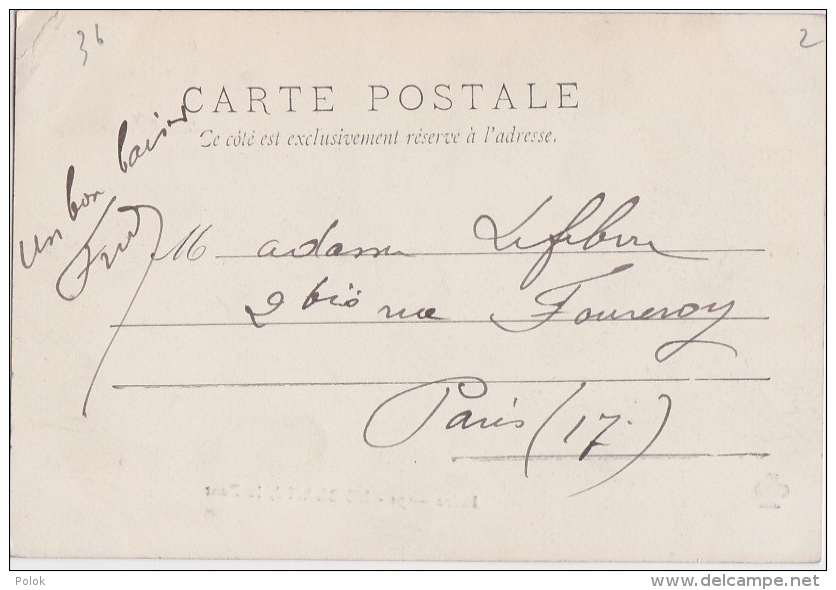 36
2
CARTE POSTALE
Ce côté est exclusivement réservé à l'adresse.
un bon baiser
Fred
Madame Lefebvre
2 bis rue Fourcroy
Paris (17)
Polok
www.delcampe.net